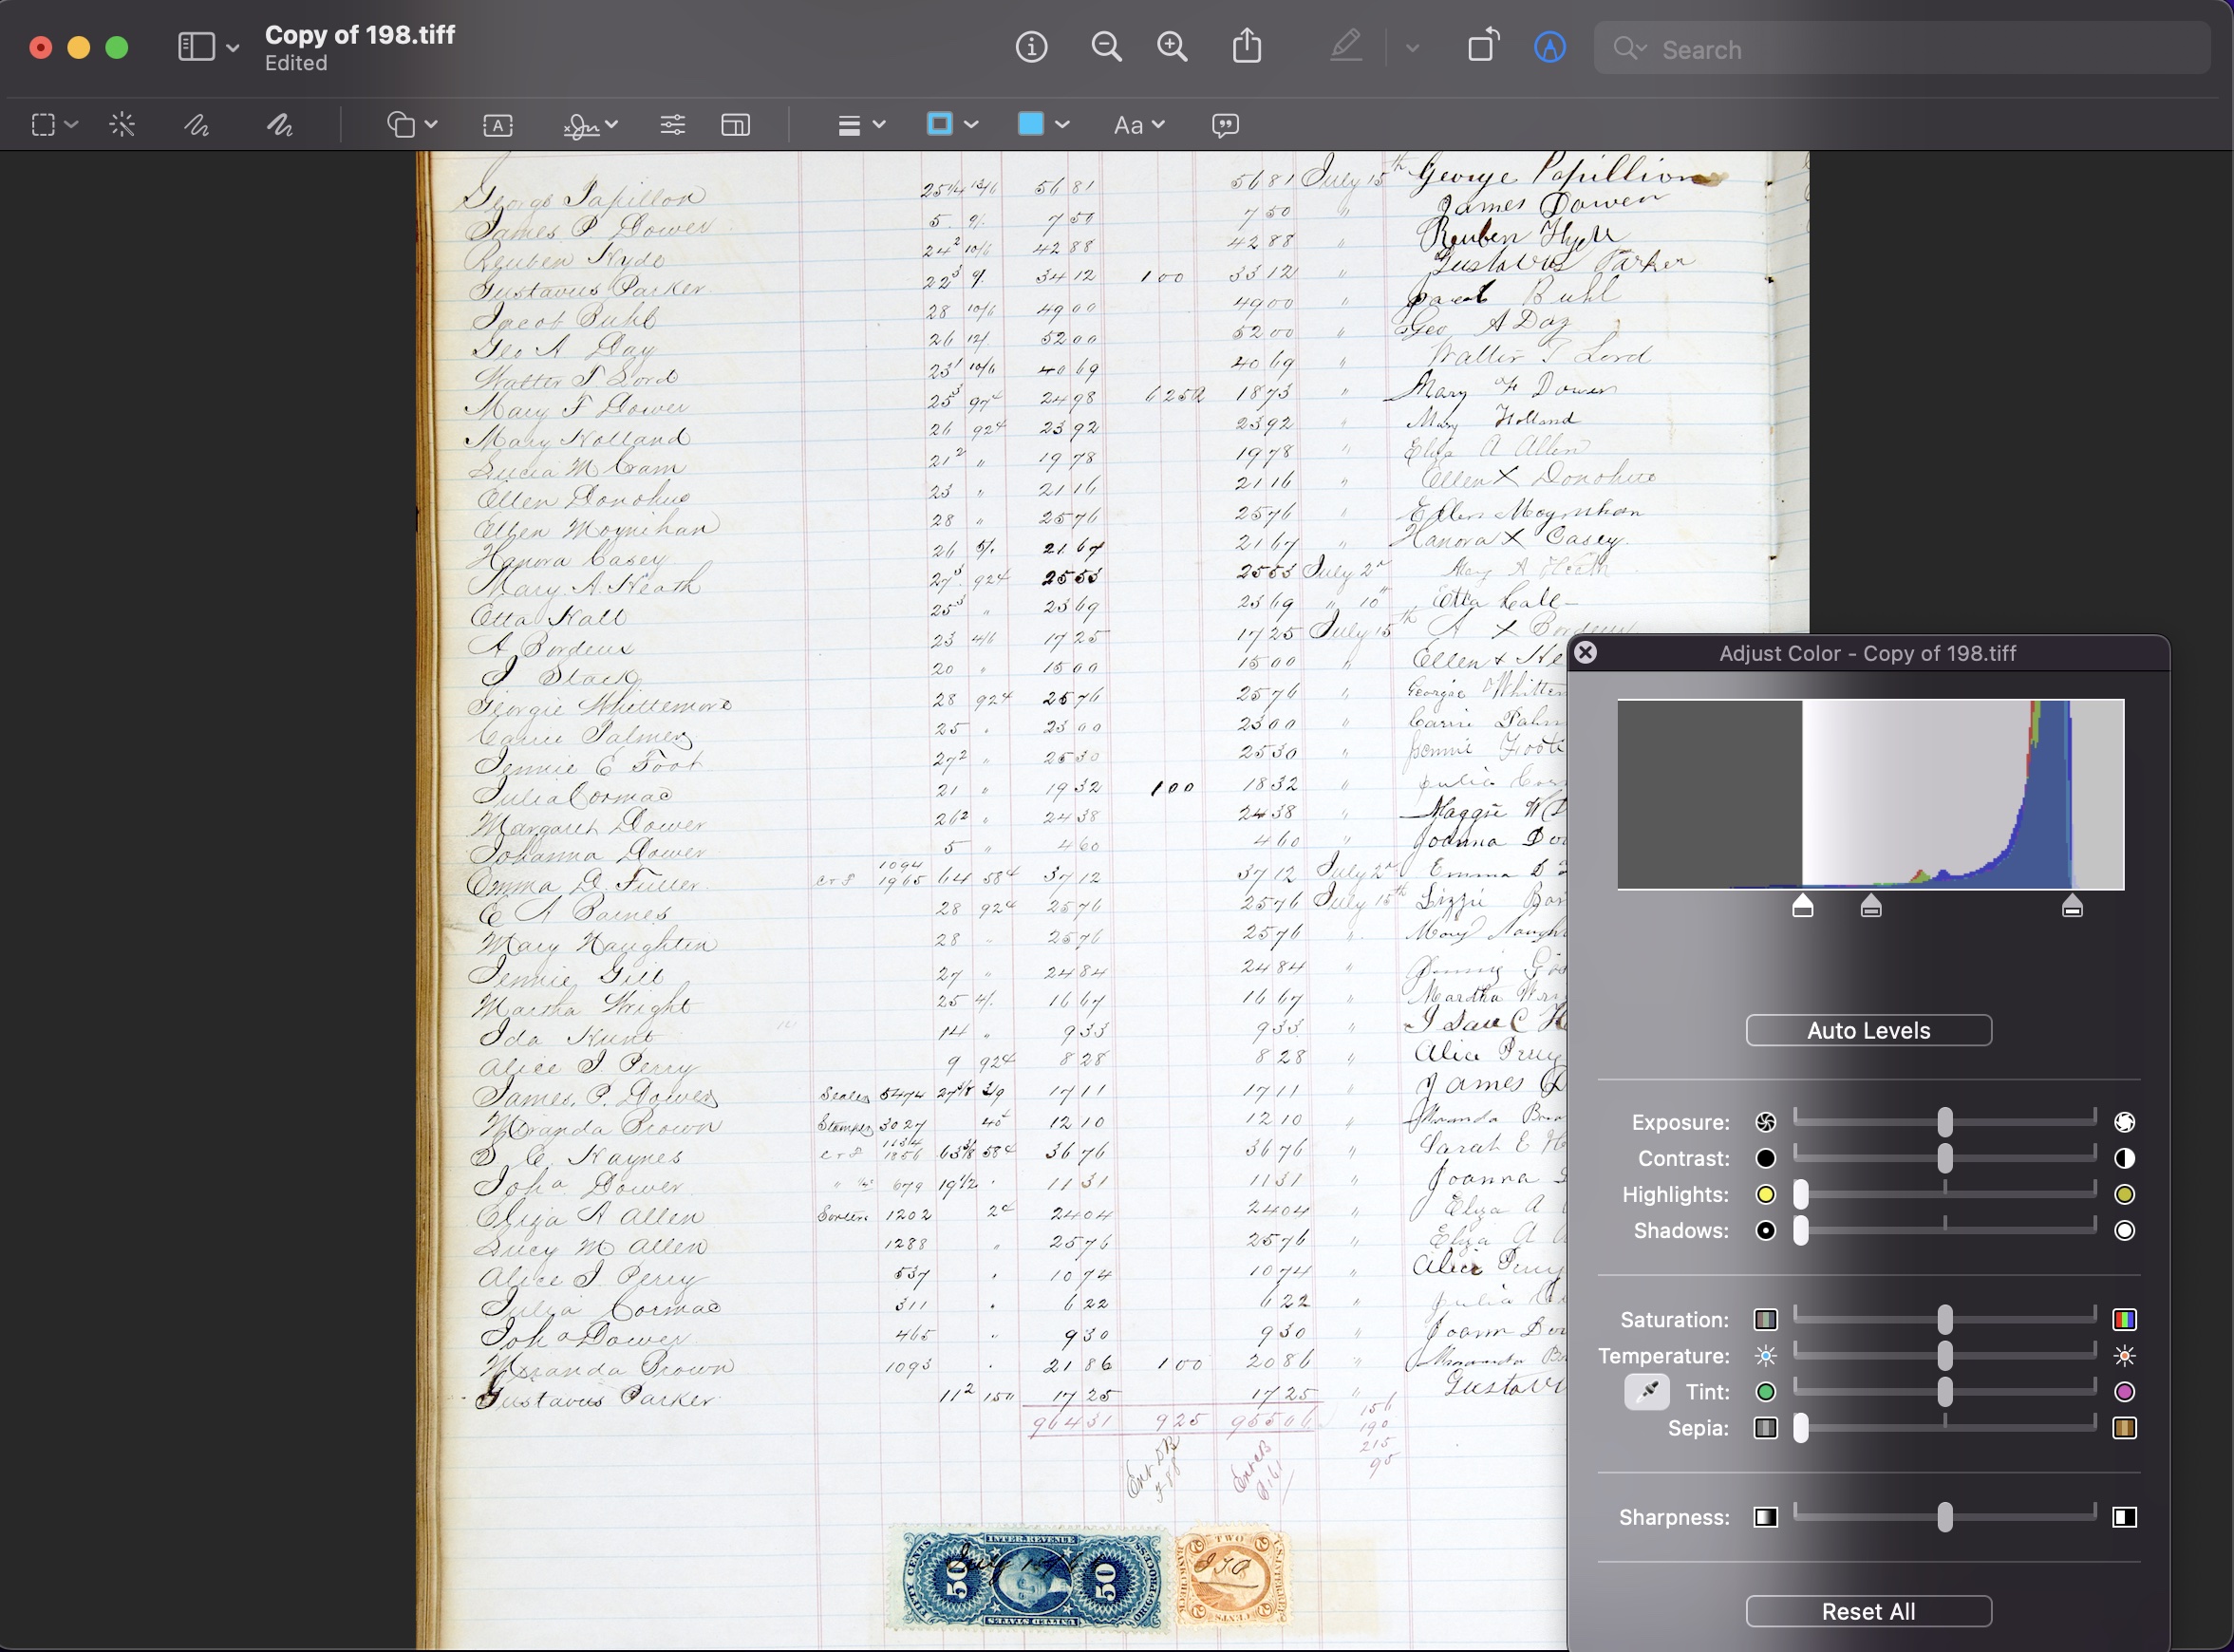 Copy of 198.tiff
Edited
Search
A Aa
George Papillon 25 1/4 13/6 56 81 56 81 July 15th George Papillion
James P. Dower 5 9/. 7 50 7 50 " James Dower
Reuben Hyde 24² 10/6 42 88 42 88 " Reuben Hyde
Gustavus Parker 22³ 9/. 34 12 1 00 33 12 " Gustavus Parker
Jacob Buhl 28 10/6 49 00 49 00 " Jacob Buhl
Geo A Day 26 12/. 52 00 52 00 " Geo A Day
Walter T Lord 23¹ 10/6 40 69 40 69 " Walter T Lord
Mary F Dower 25³ 97¢ 24 98 6 25 18 73 " Mary F Dower
Mary Holland 26 92¢ 23 92 23 92 " Mary Holland
Lucia M Cram 21² " 19 78 19 78 " Eliza A Allen
Ellen Donohue 23 " 21 16 21 16 " Ellen X Donohue
Ellen Moynihan 28 " 25 76 25 76 " Ellen Moynihan
Hanora Casey 26 5/. 21 67 21 67 " Hanora X Casey
Mary A. Heath 27³ 92¢ 25 53 25 53 July 2d Mary A Heath
Etta Hall 25³ " 23 69 23 69 " 10th Etta Hall
A Bordeux 23 4/6 17 25 17 25 July 15th A X Bordeux
J Slack 20 " 15 00 15 00 " Ellen
Georgie Whittemore 28 92¢ 25 76 25 76 " Georgie Whittem
Carrie Palmer 25 " 23 00 23 00 " Carrie Palm
Jennie E Foot 27² " 25 30 25 30 " Jennie Foote
Julia Cormac 21 " 19 32 1 00 18 32 " Julia Cor
Margaret Dower 26² " 24 38 24 38 " Maggie
Johanna Dower 5 " 4 60 4 60 " Joanna Do
1094
Emma D. Fuller c & s 1965 64 58¢ 37 12 37 12 July 2d Emma D
E A Barnes 28 92¢ 25 76 25 76 July 15th Lizzie Bar
Mary Naughtin 28 " 25 76 25 76 " Mary Naugh
Jennie Gill 27 " 24 84 24 84 " Jennie Gi
Martha Wright 25 4/. 16 67 16 67 " Martha Wri
Ida Hunt 14 " 9 33 9 33 " Isaac H
Alice J. Perry 9 92¢ 8 28 8 28 " Alice Perry
James. P. Dower Sealer 5474 27 4/8 3/9 17 11 17 11 " James D
Miranda Brown Stamper 3027 40¢ 12 10 12 10 " Miranda Brow
1134
S. E. Haynes c & s 1856 63 3/8 58¢ 36 76 36 76 " Sarah E H
Joha Dower " 679 19 1/2 " 11 31 11 31 " Joanna
Eliza A Allen Sorters 1202 2¢ 24 04 24 04 " Eliza A
Lucy M Allen 1288 " 25 76 25 76 " Eliza A
Alice J Perry 537 " 10 74 10 74 " Alice Perry
Julia Cormac 311 " 6 22 6 22 " Julia
Joha Dower 465 " 9 30 9 30 " Joann Do
Miranda Brown 1093 " 21 86 1 00 20 86 " Miranda Br
Gustavus Parker 11² 150 17 25 17 25 " Gustavu
964 31 9 25 955 06
156
190
215
95
Ent DB
Ent CB
INTER. REVENUE
FIFTY CENTS
50 50
ORIG. PROCESS
UNITED STATES
TWO
BANK CHECK
U.S. INTER. REV.
2 CENTS 2
Adjust Color - Copy of 198.tiff
Auto Levels
Exposure:
Contrast:
Highlights:
Shadows:
Saturation:
Temperature:
Tint:
Sepia:
Sharpness:
Reset All